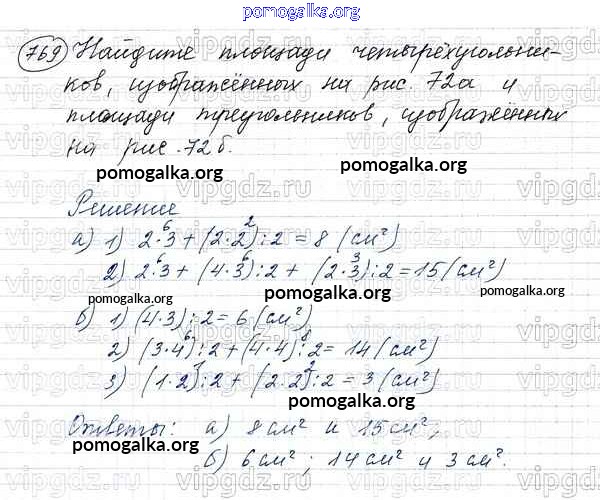 pomogalka.org
769 Найдите площади четырёхугольни-
ков, изображённых на рис. 72а и
площади треугольников, изображённых
на рис. 72б.
pomogalka.org
pomogalka.org
Решение
а) 1) 2·3 + (2·2):2 = 8 (см²)
6 2
2) 2·3 + (4·3):2 + (2·3):2 = 15 (см²)
6 6 3
pomogalka.org pomogalka.org pomogalka.org
б) 1) (4·3):2 = 6 (см²)
2) (3·4):2 + (4·4):2 = 14 (см²)
6 8
3) (1·2):2 + (2·2):2 = 3 (см²)
pomogalka.org
Ответы: а) 8 см² и 15 см²;
pomogalka.org
б) 6 см²; 14 см² и 3 см².
vipgdz.ru